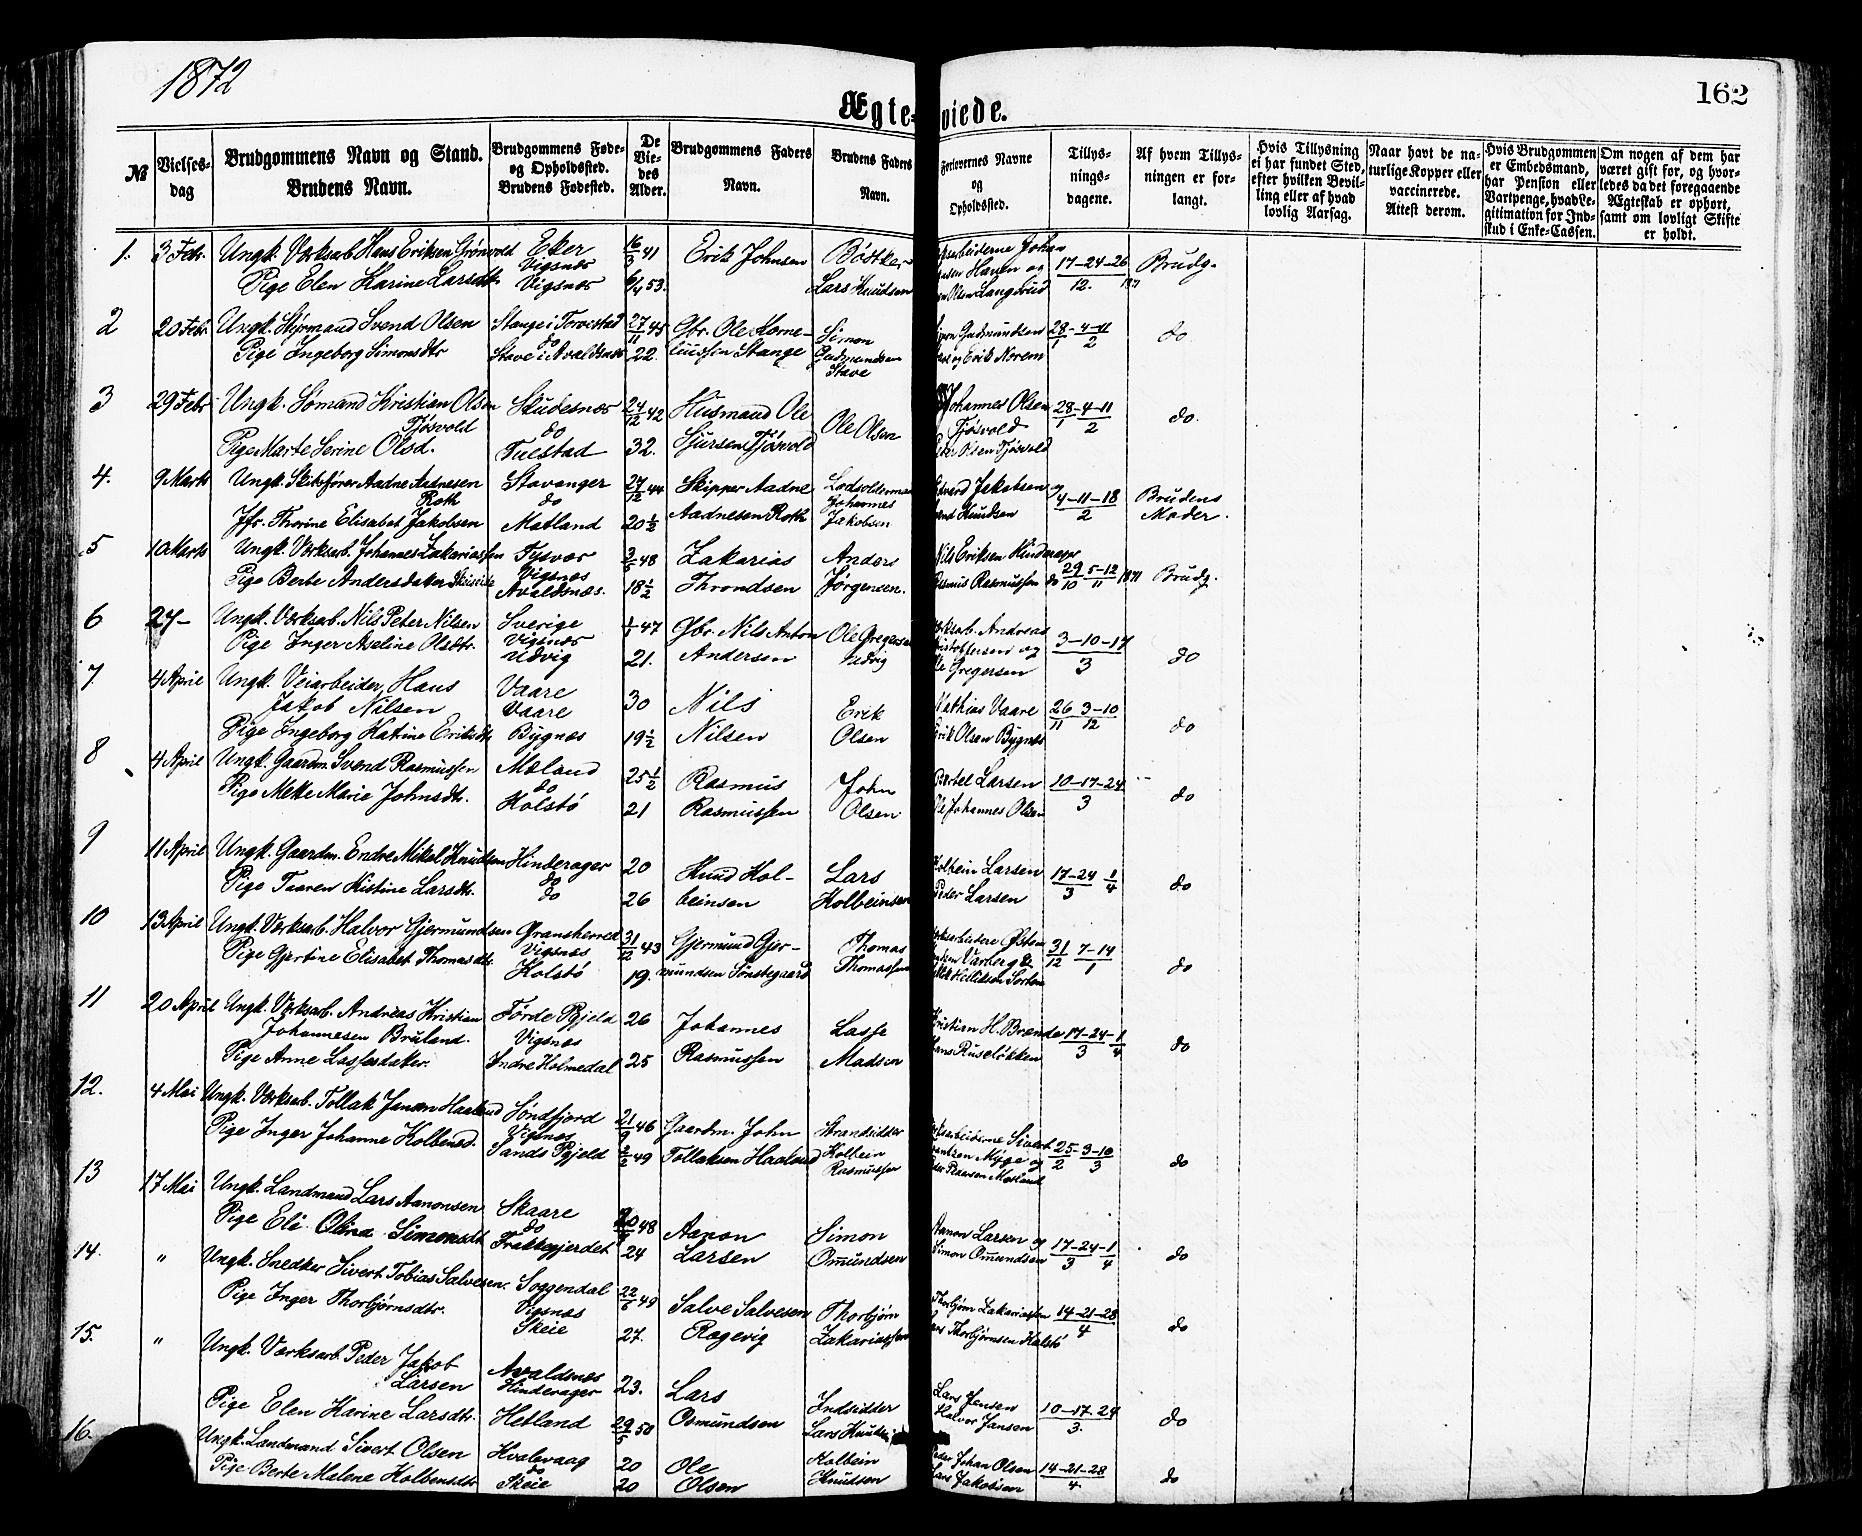 1872
162
Ægte-viede.
№
Vielses-dag
Brudgommens Navn og Stand. Brudens Navn.
Brudgommens Føde- og Opholdssted. Brudens Fødested.
De Viedes Alder.
Brudgommens Faders Navn.
Brudens Faders Navn.
Forlovernes Navne og Opholdssted.
Tillysningsdagene.
Af hvem Tillysningen er forlangt.
Hvis Tillysning ei har fundet Sted, efter hvilken Bevilling eller af hvad lovlig Aarsag.
Naar havt de naturlige Kopper eller vaccinerede. Attest derom.
Hvis Brudgommen er Embedsmand, har Pension eller Vartpenge, hvad Legitimation for Indskud i Enke-Cassen.
Om nogen af dem har været gift for, og hvorledes da det foregaaende Ægteskab er ophørt, samt om lovligt Skifte er holdt.
1. 3 Febr. Ungk. Værksarb Hans Eriksen Grønvold Eker 16/3 41 Erik Johnsen Bödtker
Vigsnæs 17-24-26/12. Brudg.
Pige Elen Karine Larsdtr Vigsnæs 53. Lars Knudsen Olsen Langerud
2 20 Febr. Ungk. Skjømand Svend Olsen Stange i Torvestad 27/11 45 Gbr. Ole Korne- Simon Gudmundsen 28/1-4-11/2 do
Pige Ingeborg Simonsdtr do Stave i Avaldsnæs 22. liussen Stange Gudmundsen Stave og Erik Norem
3 29 Febr Ungk. Sømand Kristian Olsen Skudesnæs 24/12 42 Husmand Ole Johannes Olsen 28/1-4-11/2 do.
Tjøsvold do Ole Olsen Tjøsvold
Pige Marte Serine Olsd. Tuestad 32. Sjursen Tjøsvold Olsen Tjøsvold
4. 9 Marts Ungk. Skibsfører Aadne Aadnesen Stavanger 27/12 44 Skipper Aadne Lodsolderman Jakobsen og 4-11-18/2 Brudens Moder.
Roth do Johannes
Jfr. Thorine Elisabet Jakobsen Matland 20½ Aadnesen Roth Jakobsen Knudsen
5 10 Marts Ungk. Værksarb. Johannes Zakariassen Tysvær 48 Zakarias Anders Nils Eriksen Hinderager
Vigsnæs 29/10 5-12/11 1871 Brudg.
Pige Berte Andersdater Avaldsnæs. 18½ Throndsen Jørgensen. Rasmus Rasmussen do
6 27- Ungk. Værksarb. Nils Peter Nilsen Sverige 47 Gbr. Nils Anton Ole Gregersen Andreas
Vigsnæs 3-10-17/3 do
Pige Inger Aseline Olsdtr. Udvig 21. Andersen Udvig Gregersen
7 4 April Ungk. Veiarbeider, Hans Vaare 30 Nils Erik Mathias Vaare 26/11 3-10/12 do
Jakob Nilsen Vaare
Pige Ingeborg Katrine Eriksdtr Bygnæs 19½ Nilsen Olsen Erik Olsen Bygnæs
8 4 April Ungk. Gaardm. Svend Rasmussen Mæland 25½ Rasmus John Bertel Larsen 10-17-24/3 do
do
Pige Mette Marie Johnsdtr. Kolstö 21 Rasmussen Olsen Ole Johannes Olsen
9 11 April Ungk. Gaardm. Endre Mikal Knudsen Hinderager 20 Knud Kol- Lars Kolbein Larsen 17-24/3 1/4 do
do
Pige Taaren Kistine Larsdtr. do 26 beinsen Kolbeinsen Peder Larsen
10 13 April Ungk. Værksarb. Halvor Gjermundsen Gransherred 31/12 43 Gjermund Gjer- Thomas Østen 31/12 7-14/1 do
Vigsnæs
Pige Gjertine Elisabet Thomasdtr. Kolstö 19. mundsen Thomassen
11 20 April Ungk. Værksarb. Andreas Kristian Førde Ryfeld 26 Johannes Lasse Kristian H. Brænde 17-24/3-1/4 do
Johannesen Bruland. Vigsnæs
Pige Anne Lassesdater. Indre Holmedal 25 Rasmussen Madsen Hans Ruseløkken
12. 4 Mai Ungk. Værksarb. Tollak Jansen Haaland Söndfjord 21/9 46 Gaardm. John Strandsidder Sivert 25/2-3-10/3 do
Vigsnæs
Pige Inger Johanne Kolbensd. Sands Ryfeld 49 Tollaksen Haaland Kolbein Rasmussen
13 17 Mai Ungk. Landmand Lars Aanonsen Skaare 48 Aanon Simon Aanon Larsen og 17-24/3-1/4 do
do
Pige Eli Olina Simonsdt Frakkagjerdet 24 Larsen Omundsen Simon Omundsen
14. " Ungk. Snedker Sivert Tobias Salvesen. Soggendal 22/6 49 Salve Salvesen Thorbjørn Thorbjørn Zakariassen 14-21-28/4 do
Vigsnæs
Pige Inger Thorbjørnsdtr. Skeie 27. Rægevig Zakariassen Thorbjørnsen Kolstö
15. " Ungk. Værksarb. Peder Jakob Avaldsnæs 23. Lars Indsidder Lars Jensen 10-17-24/3. do
Larsen Hinderager
Pige Elen Karine Larsdtr. Hetland 29/5 50 Osmundsen Lars Knudsen Halvor Jansen
16. Ungk. Landmand Sivert Olsen Kvalevaag 20 Ole Kolbein Peder Johan Olsen 14-21-28/4 do
do
Pige Berte Malene Kolbensdtr Skeie 20 Olsen Knudsen Lars Jakobsen